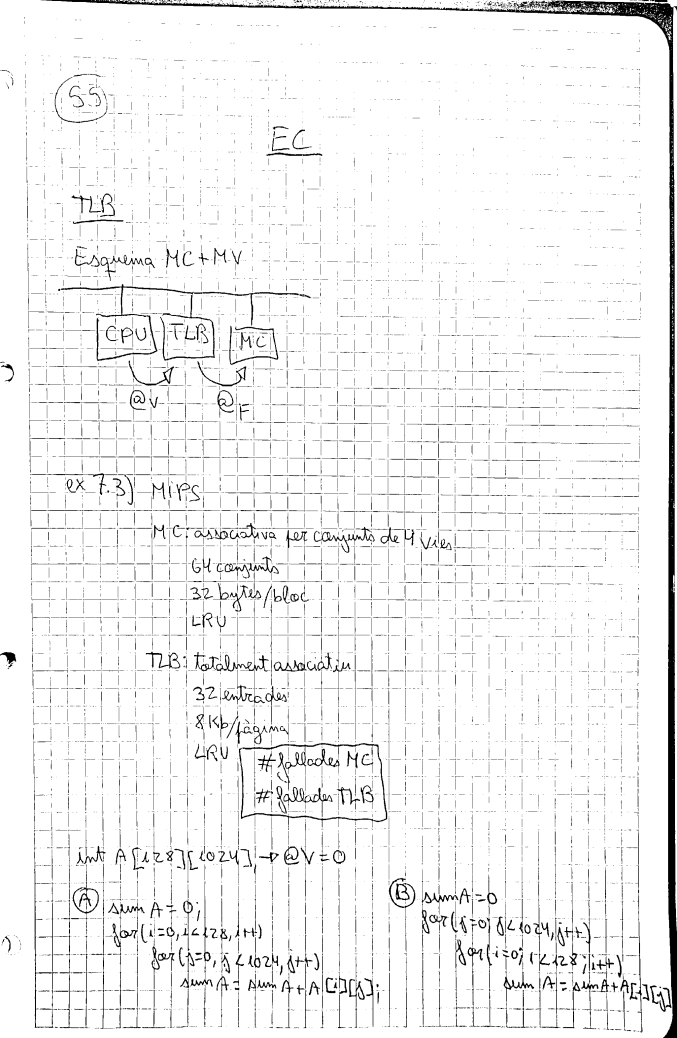 55
EC
TLB
Esquema MC+MV
CPU TLB MC
@V @F
ex 7.3) MIPS
MC: associativa per conjunts de 4 vies
64 conjunts
32 bytes/bloc
LRU
TLB: totalment associatiu
32 entrades
8 Kb/pàgina
LRU
# fallades MC
# fallades TLB
int A[128][1024]; → @V=0
A sum A = 0;
for(i=0, i<128, i++)
for(j=0, j<1024, j++)
sum A = sum A + A[i][j];
B sumA=0
for(j=0; j<1024, j++)
for(i=0; i<128; i++)
sum A = sumA+A[i][j]